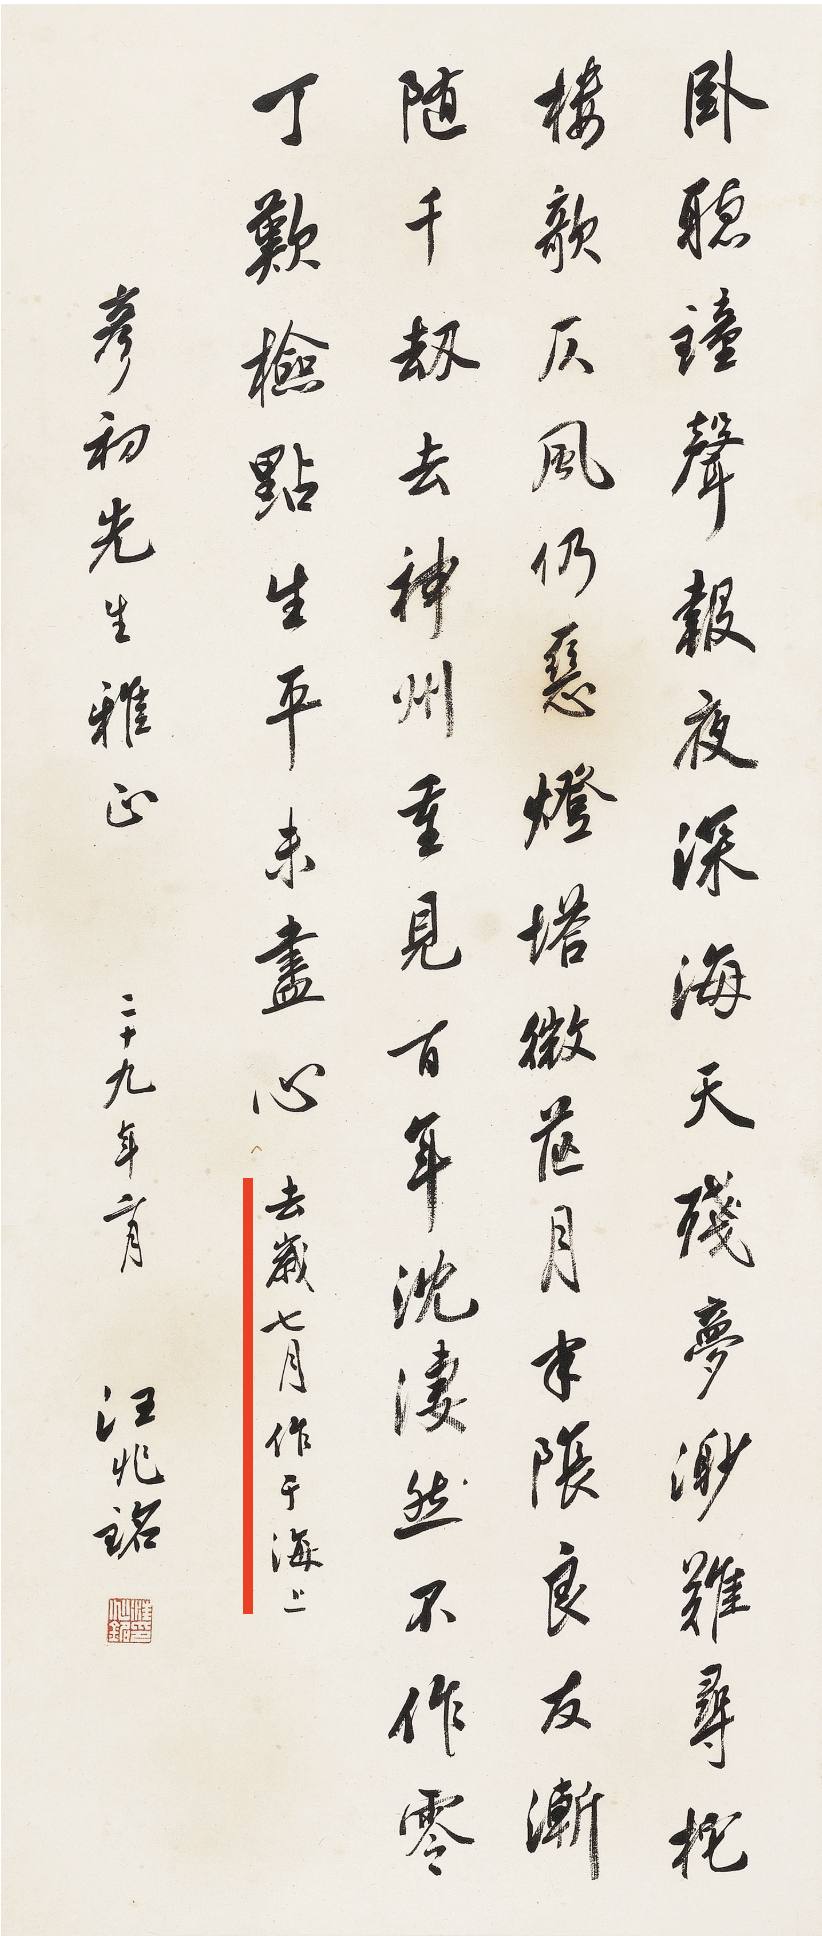 卧聽鐘聲報夜深海天殘夢渺難尋柁
樓欹仄風仍惡燈塔微茫月半陰良友漸
随千刼去神州重見百年沈淒然不作零
丁歎檢點生平未盡心 去歲七月作于海上
彥初先生雅正 二十九年月 汪兆銘